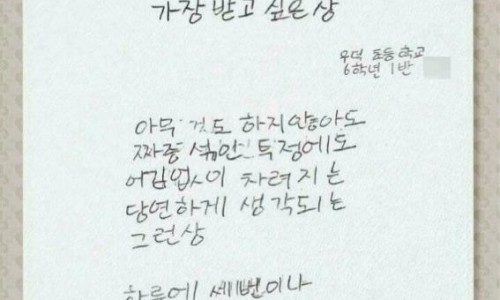 가장 받고 싶은 상
우덕 초등 학교
6학년 1반
아무 것도 하지 않아도
짜증 섞인 투정에도
어김없이 차려지는
당연하게 생각되는
그런상
하루에 세번이나